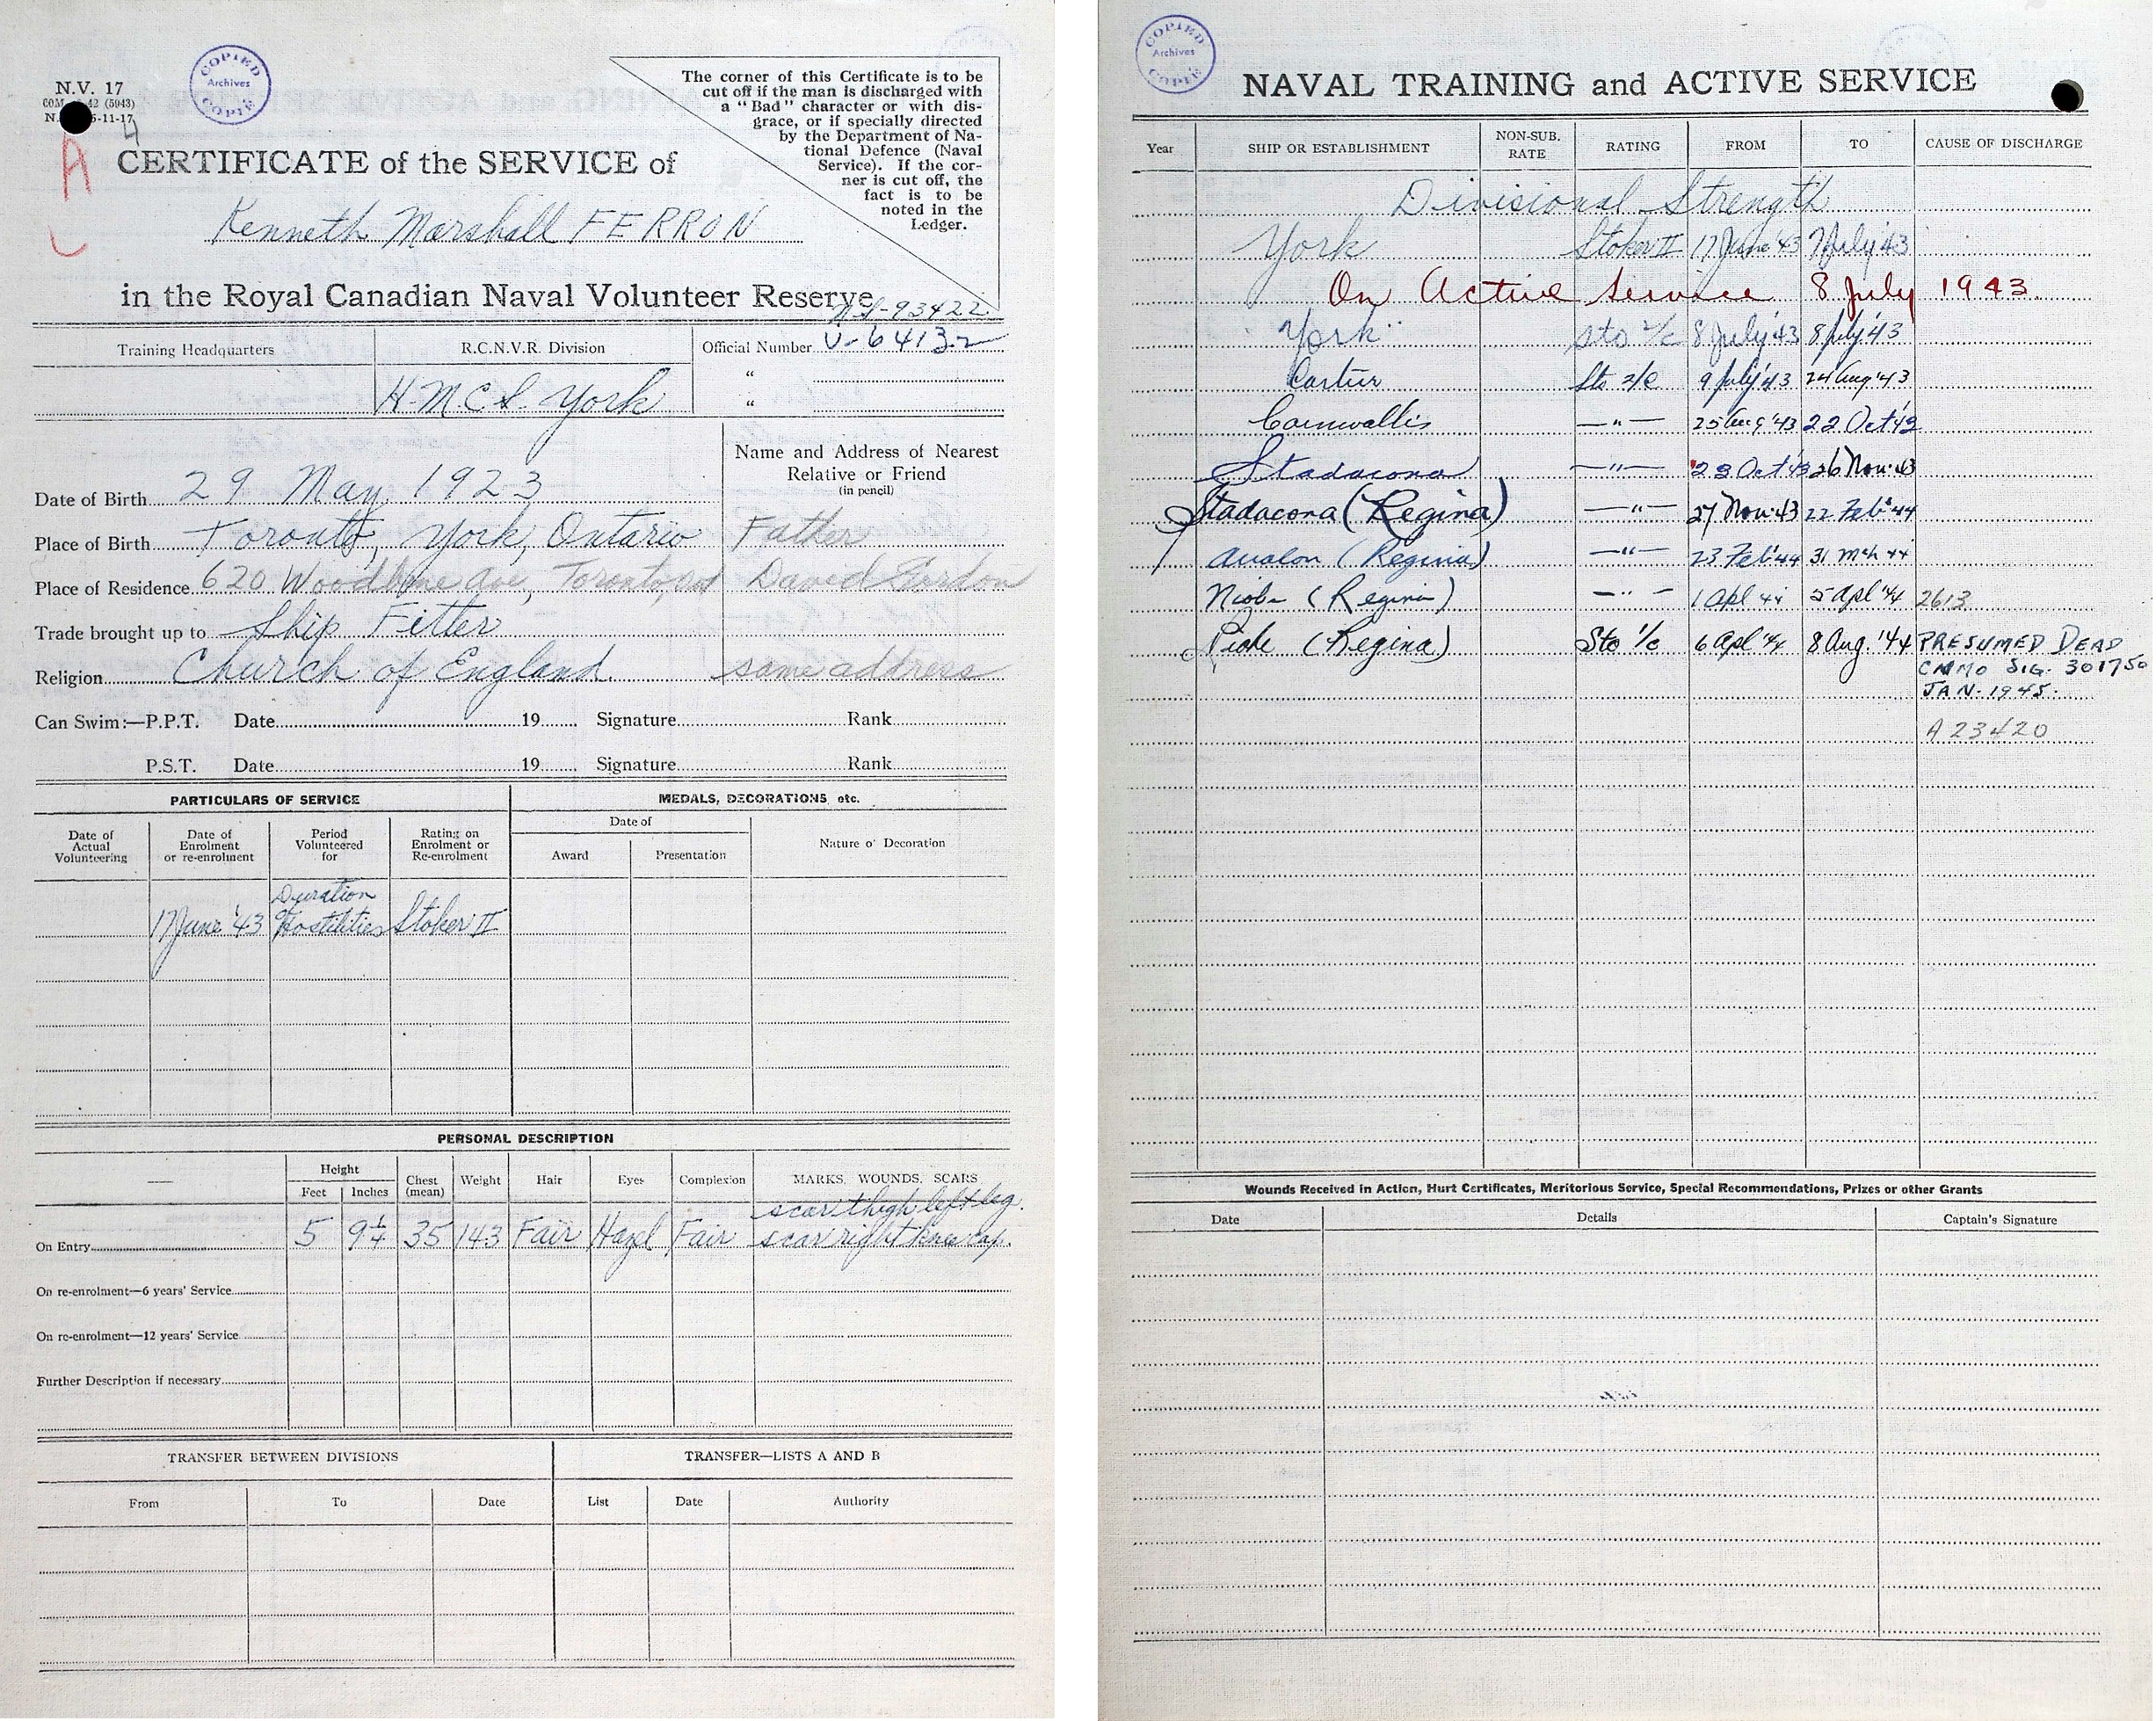 COPIED
Archives
COPIÉ
N.V. 17
CERTIFICATE of the SERVICE of
Kenneth Marshall FERRON
in the Royal Canadian Naval Volunteer Reserve
The corner of this Certificate is to be
cut off if the man is discharged with
a "Bad" character or with dis-
grace, or if specially directed
by the Department of Na-
tional Defence (Naval
Service). If the cor-
ner is cut off, the
fact is to be
noted in the
Ledger.
93422
Training Headquarters R.C.N.V.R. Division Official Number V-64132
H.M.C.S. York "
"
Name and Address of Nearest
Relative or Friend
(in pencil)
Date of Birth 29 May 1923
Place of Birth Toronto, York, Ontario Father
Place of Residence 620 Woodbine Ave, Toronto, Ont David Gordon
Trade brought up to Ship Fitter
Religion Church of England. same address
Can Swim:—P.P.T. Date 19 Signature Rank
P.S.T. Date 19 Signature Rank
PARTICULARS OF SERVICE MEDALS, DECORATIONS, etc.
Date of Actual Volunteering Date of Enrolment or re-enrolment Period Volunteered for Rating on Enrolment or Re-enrolment Date of Award Presentation Nature of Decoration
17 June '43 Duration of Hostilities Stoker II
PERSONAL DESCRIPTION
Height Feet Inches Chest (mean) Weight Hair Eyes Complexion MARKS, WOUNDS, SCARS
scar thigh left leg.
On Entry 5 9¼ 35 143 Fair Hazel Fair scar right knee cap.
On re-enrolment—6 years' Service
On re-enrolment—12 years' Service
Further Description if necessary
TRANSFER BETWEEN DIVISIONS TRANSFER—LISTS A AND B
From To Date List Date Authority
COPIED
Archives
COPIÉ
NAVAL TRAINING and ACTIVE SERVICE
Year SHIP OR ESTABLISHMENT NON-SUB. RATE RATING FROM TO CAUSE OF DISCHARGE
Divisional Strength
York Stoker II 17 June '43 7 July '43
On Active Service 8 July 1943.
York Sto 2/c 8 July '43 8 July '43
Cartier Sto 2/c 9 July '43 24 Aug '43
Cornwallis —"— 25 Aug '43 22 Oct '43
Stadacona —"— 23 Oct '43 26 Nov. 43
Stadacona (Regina) —"— 27 Nov. 43 22 Feb '44
Avalon (Regina) —"— 23 Feb '44 31 Mch 44
Niobe (Regina) —"— 1 Apl 44 5 Apl '44 2613
Niobe (Regina) Sto 1/c 6 Apl '44 8 Aug. '44 PRESUMED DEAD
CNMO SIG. 301750
JAN. 1945.
A 23420
Wounds Received in Action, Hurt Certificates, Meritorious Service, Special Recommendations, Prizes or other Grants
Date Details Captain's Signature